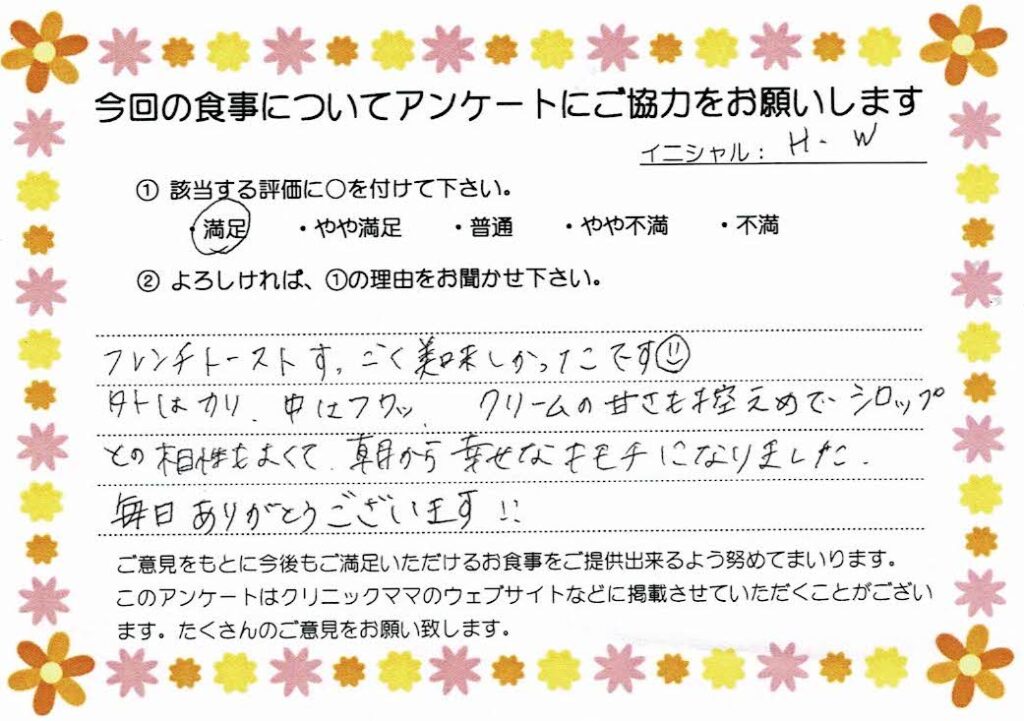 今回の食事についてアンケートにご協力をお願いします
イニシャル： H. W
① 該当する評価に〇を付けて下さい。
・満足 ・やや満足 ・普通 ・やや不満 ・不満
② よろしければ、①の理由をお聞かせ下さい。
フレンチトーストすっごく美味しかったです
外はカリ、中はフワッ、クリームの甘さも控えめで シロップ
との相性もよくて、朝から幸せなキモチになりました.
毎日ありがとうございます!!
ご意見をもとに今後もご満足いただけるお食事をご提供出来るよう努めてまいります。
このアンケートはクリニックママのウェブサイトなどに掲載させていただくことがござい
ます。たくさんのご意見をお願い致します。